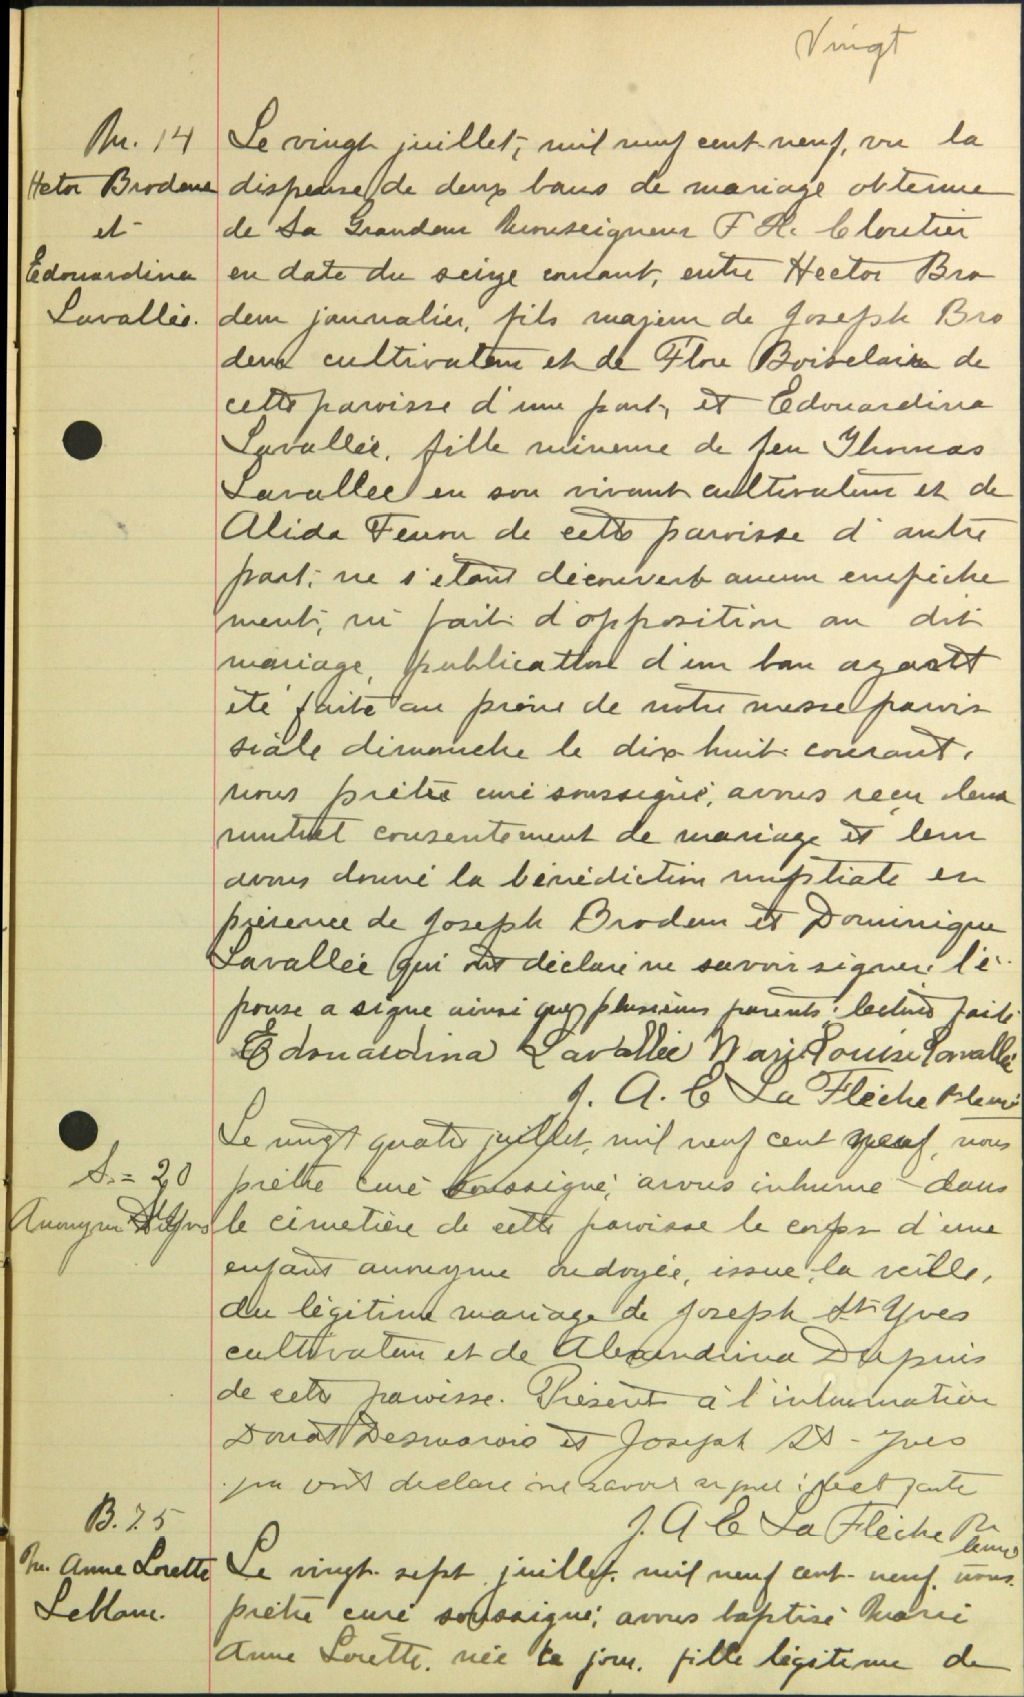 Vingt
M. 14
Hector Brodeur
et
Edouardina
Lavallée.
Le vingt juillet, mil neuf cent neuf, vu la
dispense de deux bans de mariage obtenue
de Sa Grandeur Monseigneur F X. Cloutier
en date du seize courant, entre Hector Bro
deur journalier, fils majeur de Joseph Bro
deur cultivateur et de Flore Boisclair de
cette paroisse d'une part, et Edouardina
Lavallée, fille mineure de feu Thomas
Lavallée en son vivant cultivateur et de
Alida Feuron de cette paroisse d'autre
part; ne s'étant découvert aucun empêche
ment, ni fait d'opposition au dit
mariage, publication d'un ban ayant
été faite au prône de notre messe parois
siale dimanche le dix huit courant,
nous prêtre curé soussigné, avons reçu leur
mutuel consentement de mariage et leur
avons donné la bénédiction nuptiale en
présence de Joseph Brodeur et Dominique
Lavallée qui ont déclaré ne savoir signer. l'é
pouse a signé ainsi que plusieurs parents; lecture faite
Edouardina Lavallée Marie Louise Lavallée
J. A. E La Flèche Ptre curé
S. = 20
Anonyme St Yves
Le vingt quatre juillet, mil neuf cent neuf, nous
prêtre curé soussigné, avons inhumé dans
le cimetière de cette paroisse le corps d'une
enfant anonyme ondoyée, issue, la veille,
du légitime mariage de Joseph St-Yves
cultivateur et de Alexandrina Dupuis
de cette paroisse. Présents à l'inhumation
Donat Desmarais et Joseph St-Yves
qui ont déclaré ne savoir signer; lect faite
J. A E La Flèche Ptre
curé
B. 25
M. Anne Lorette
Leblanc.
Le vingt-sept juillet, mil neuf cent-neuf, nous
prêtre curé soussigné, avons baptisé Marie
Anne Lorette, née ce jour, fille légitime de